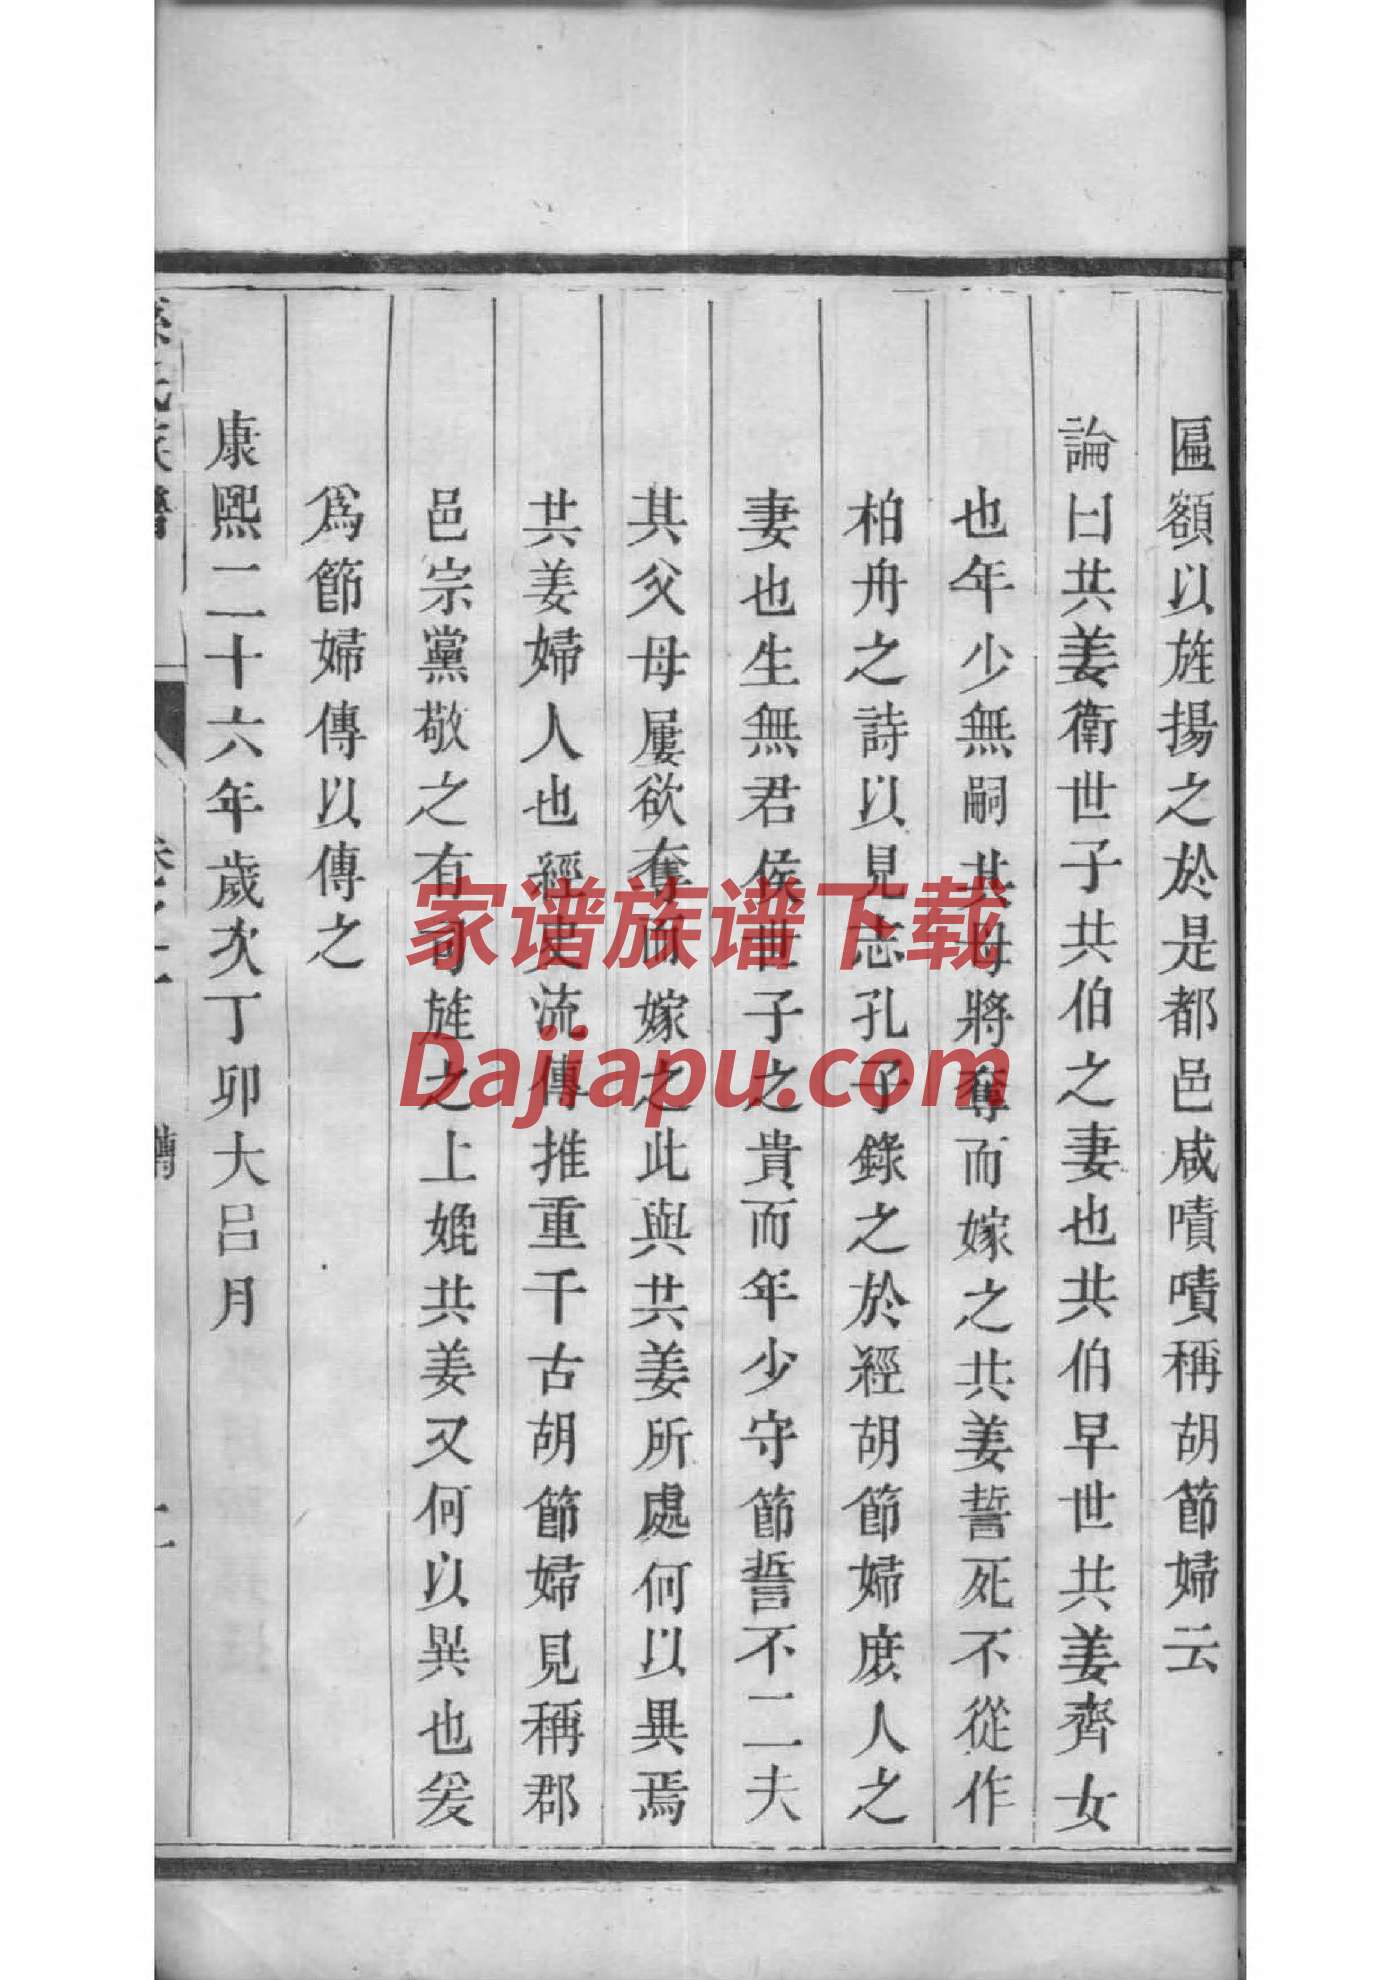 匾額以旌揚之於是都邑咸嘖嘖稱胡節婦云
論曰共姜衛世子共伯之妻也共伯早世共姜齊女
也年少無嗣其母將奪而嫁之共姜誓死不從作
柏舟之詩以見志孔子錄之於經胡節婦庶人之
妻也生無君侯世子之貴而年少守節誓不二夫
其父母屢欲奪而嫁之此與共姜所處何以異焉
共姜婦人也經史流傳推重千古胡節婦見稱郡
邑宗黨敬之有司旌之上媲共姜又何以異也爰
爲節婦傳以傳之
康熙二十六年歲次丁卯大呂月
孫氏族譜
傳
家谱族谱下载
Dajiapu.com